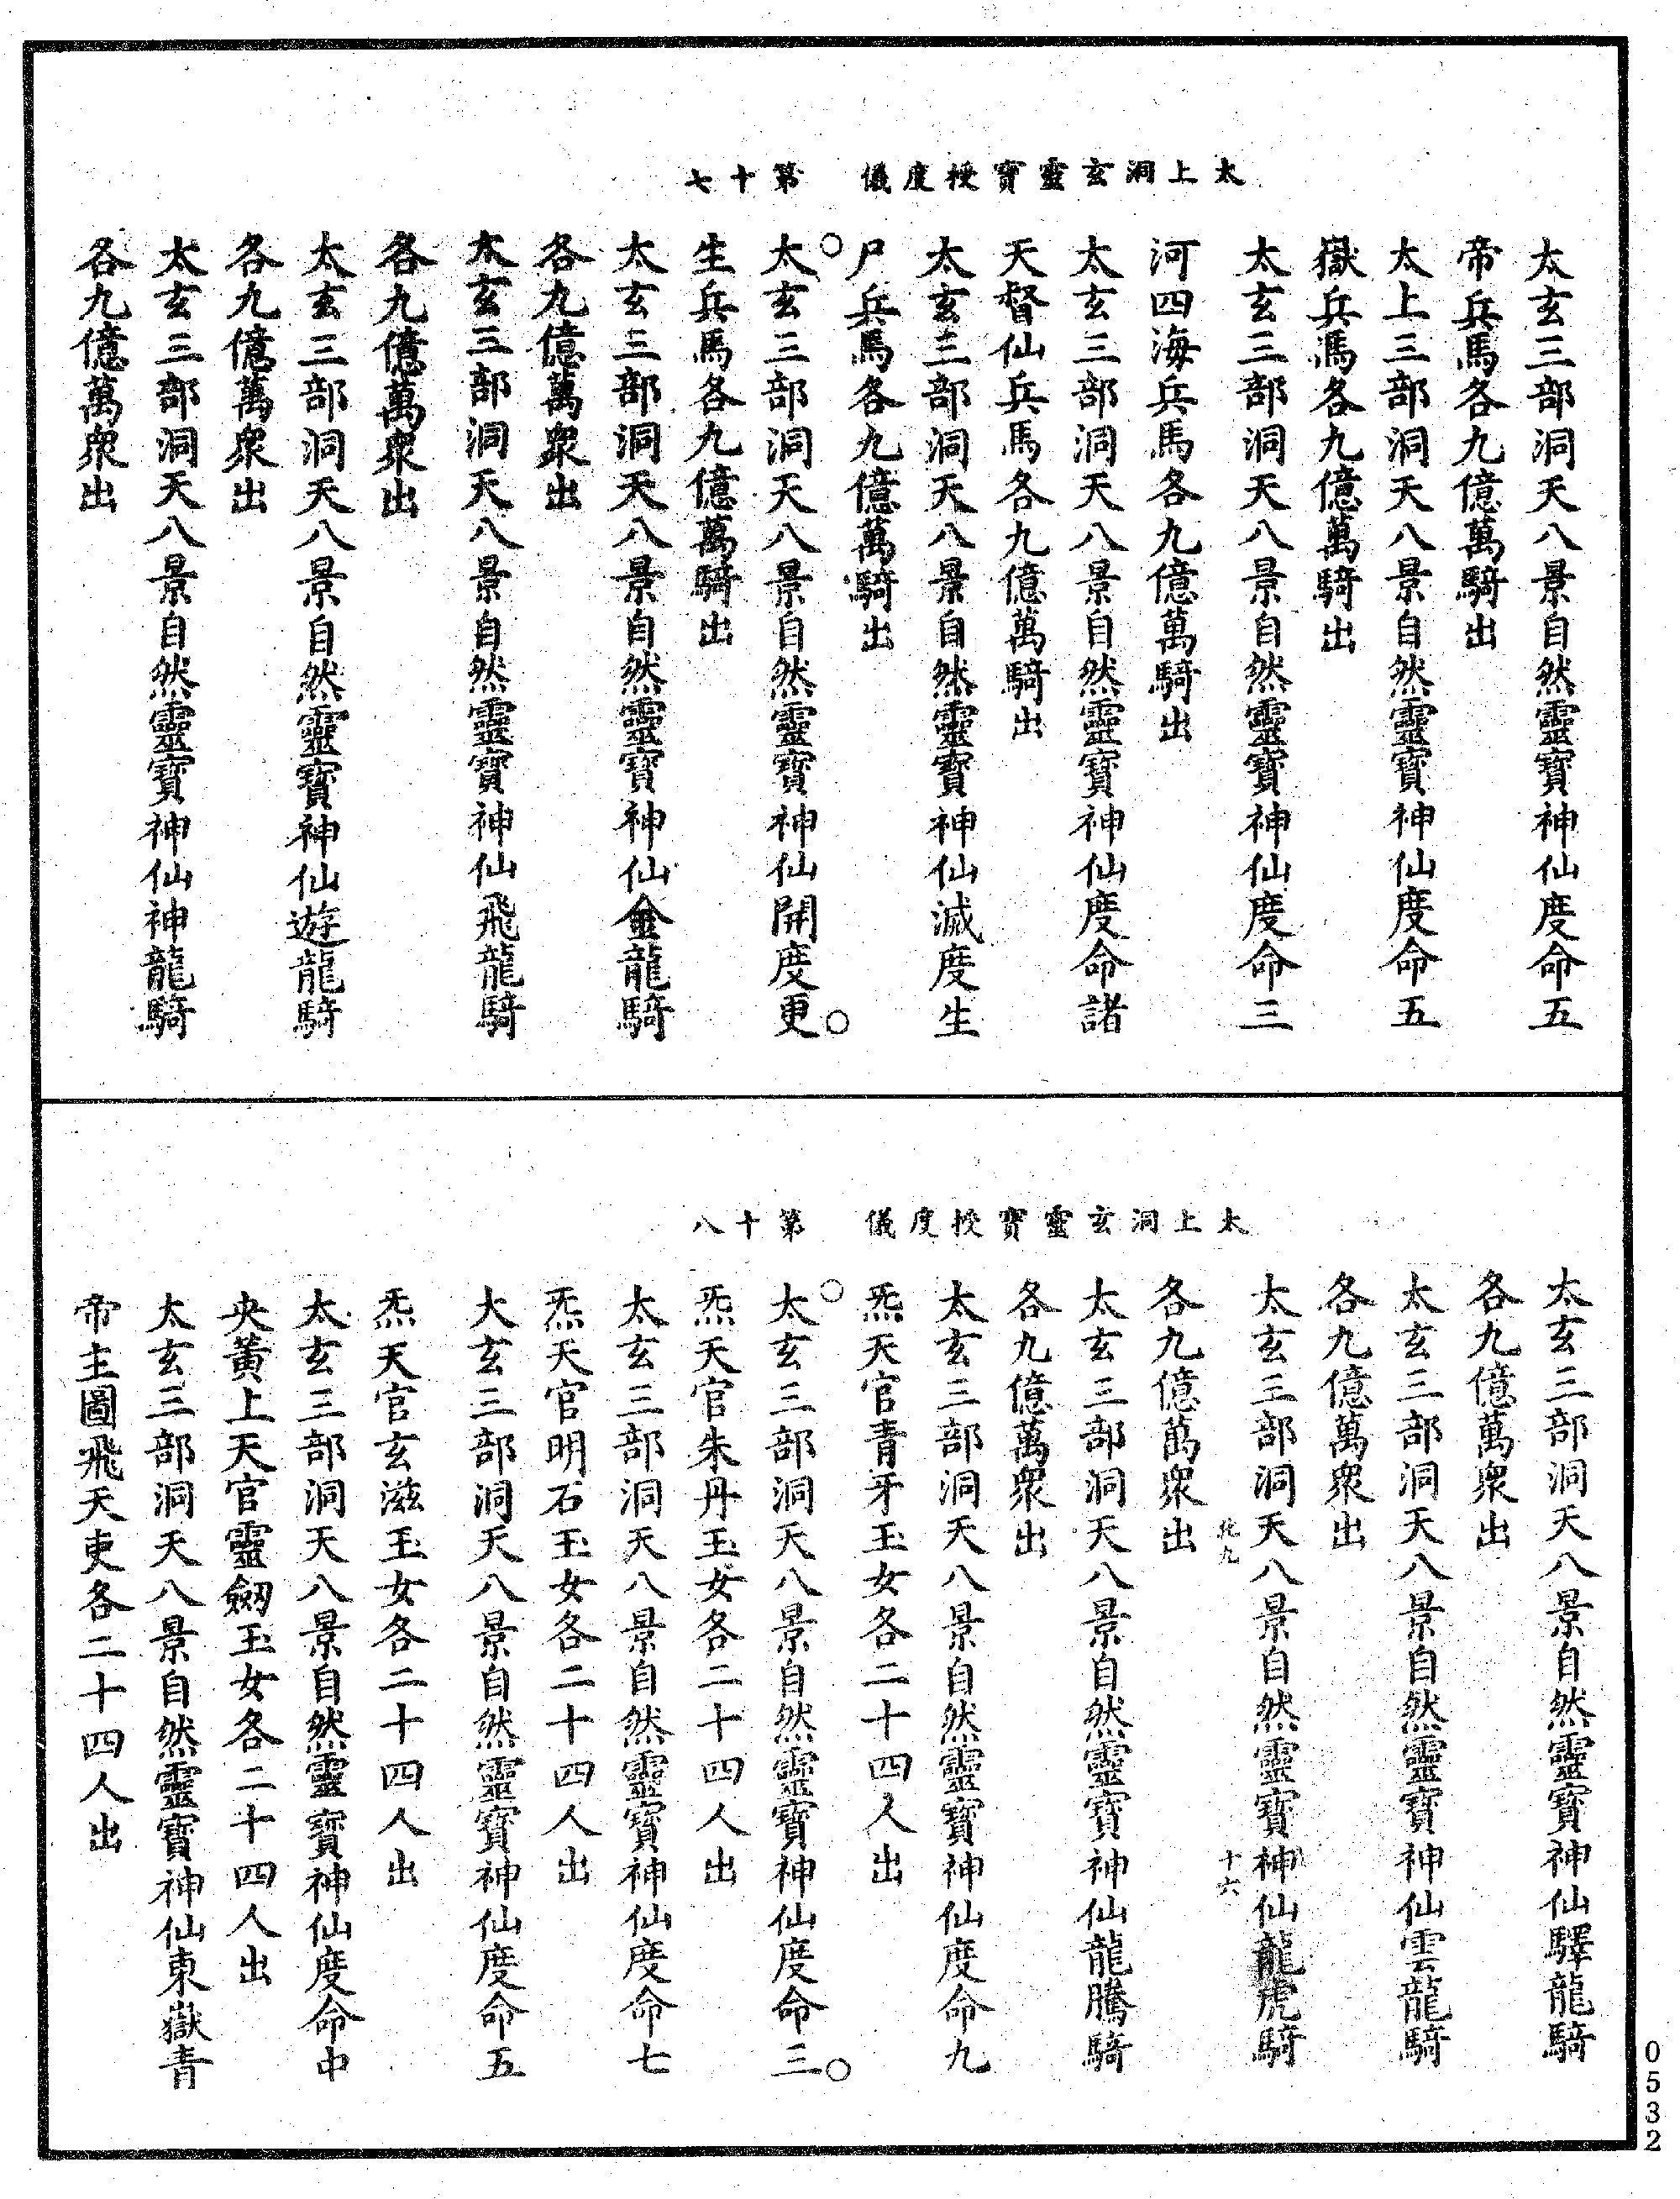 太上洞玄靈寶授度儀　第十七
太玄三部洞天八景自然靈寶神仙度命五
帝兵馬各九億萬騎出
太上三部洞天八景自然靈寶神仙度命五
嶽兵馮各九億萬騎出
太玄三部洞天八景自然靈寶神仙度命三
河四海兵馬各九億萬騎出
太玄三部洞天八景自然靈寶神仙度命諸
天督仙兵馬各九億萬騎出
太玄三部洞天八景自然靈寶神仙滅度生
尸兵馬各九億萬騎出
太玄三部洞天八景自然靈寶神仙開度更
生兵馬各九億萬騎出
太玄三部洞天八景自然靈寶神仙金龍騎
各九億萬衆出
太玄三部洞天八景自然靈寶神仙飛龍騎
各九億萬衆出
太玄三部洞天八景自然靈寶神仙遊龍騎
各九億萬衆出
太玄三部洞天八景自然靈寶神仙神龍騎
各九億萬衆出
太上洞玄靈寶授度儀　第十八
太玄三部洞天八景自然靈寶神仙驛龍騎
各九億萬衆出
太玄三部洞天八景自然靈寶神仙雲龍騎
各九億萬衆出
太玄三部洞天八景自然靈寶神仙龍虎騎
九　十六
各九億萬衆出
太玄三部洞天八景自然靈寶神仙龍騰騎
各九億萬衆出
太玄三部洞天八景自然靈寶神仙度命九
炁天官青牙玉女各二十四人出
太玄三部洞天八景自然靈寶神仙度命三
炁天官朱丹玉女各二十四人出
太玄三部洞天八景自然靈寶神仙度命七
炁天官明石玉女各二十四人出
大玄三部洞天八景自然靈寶神仙度命五
炁天官玄滋玉女各二十四人出
太玄三部洞天八景自然靈寶神仙度命中
央黃上天官靈劒玉女各二十四人出
太玄三部洞天八景自然靈寶神仙東嶽青
帝主圖飛天吏各二十四人出
0532